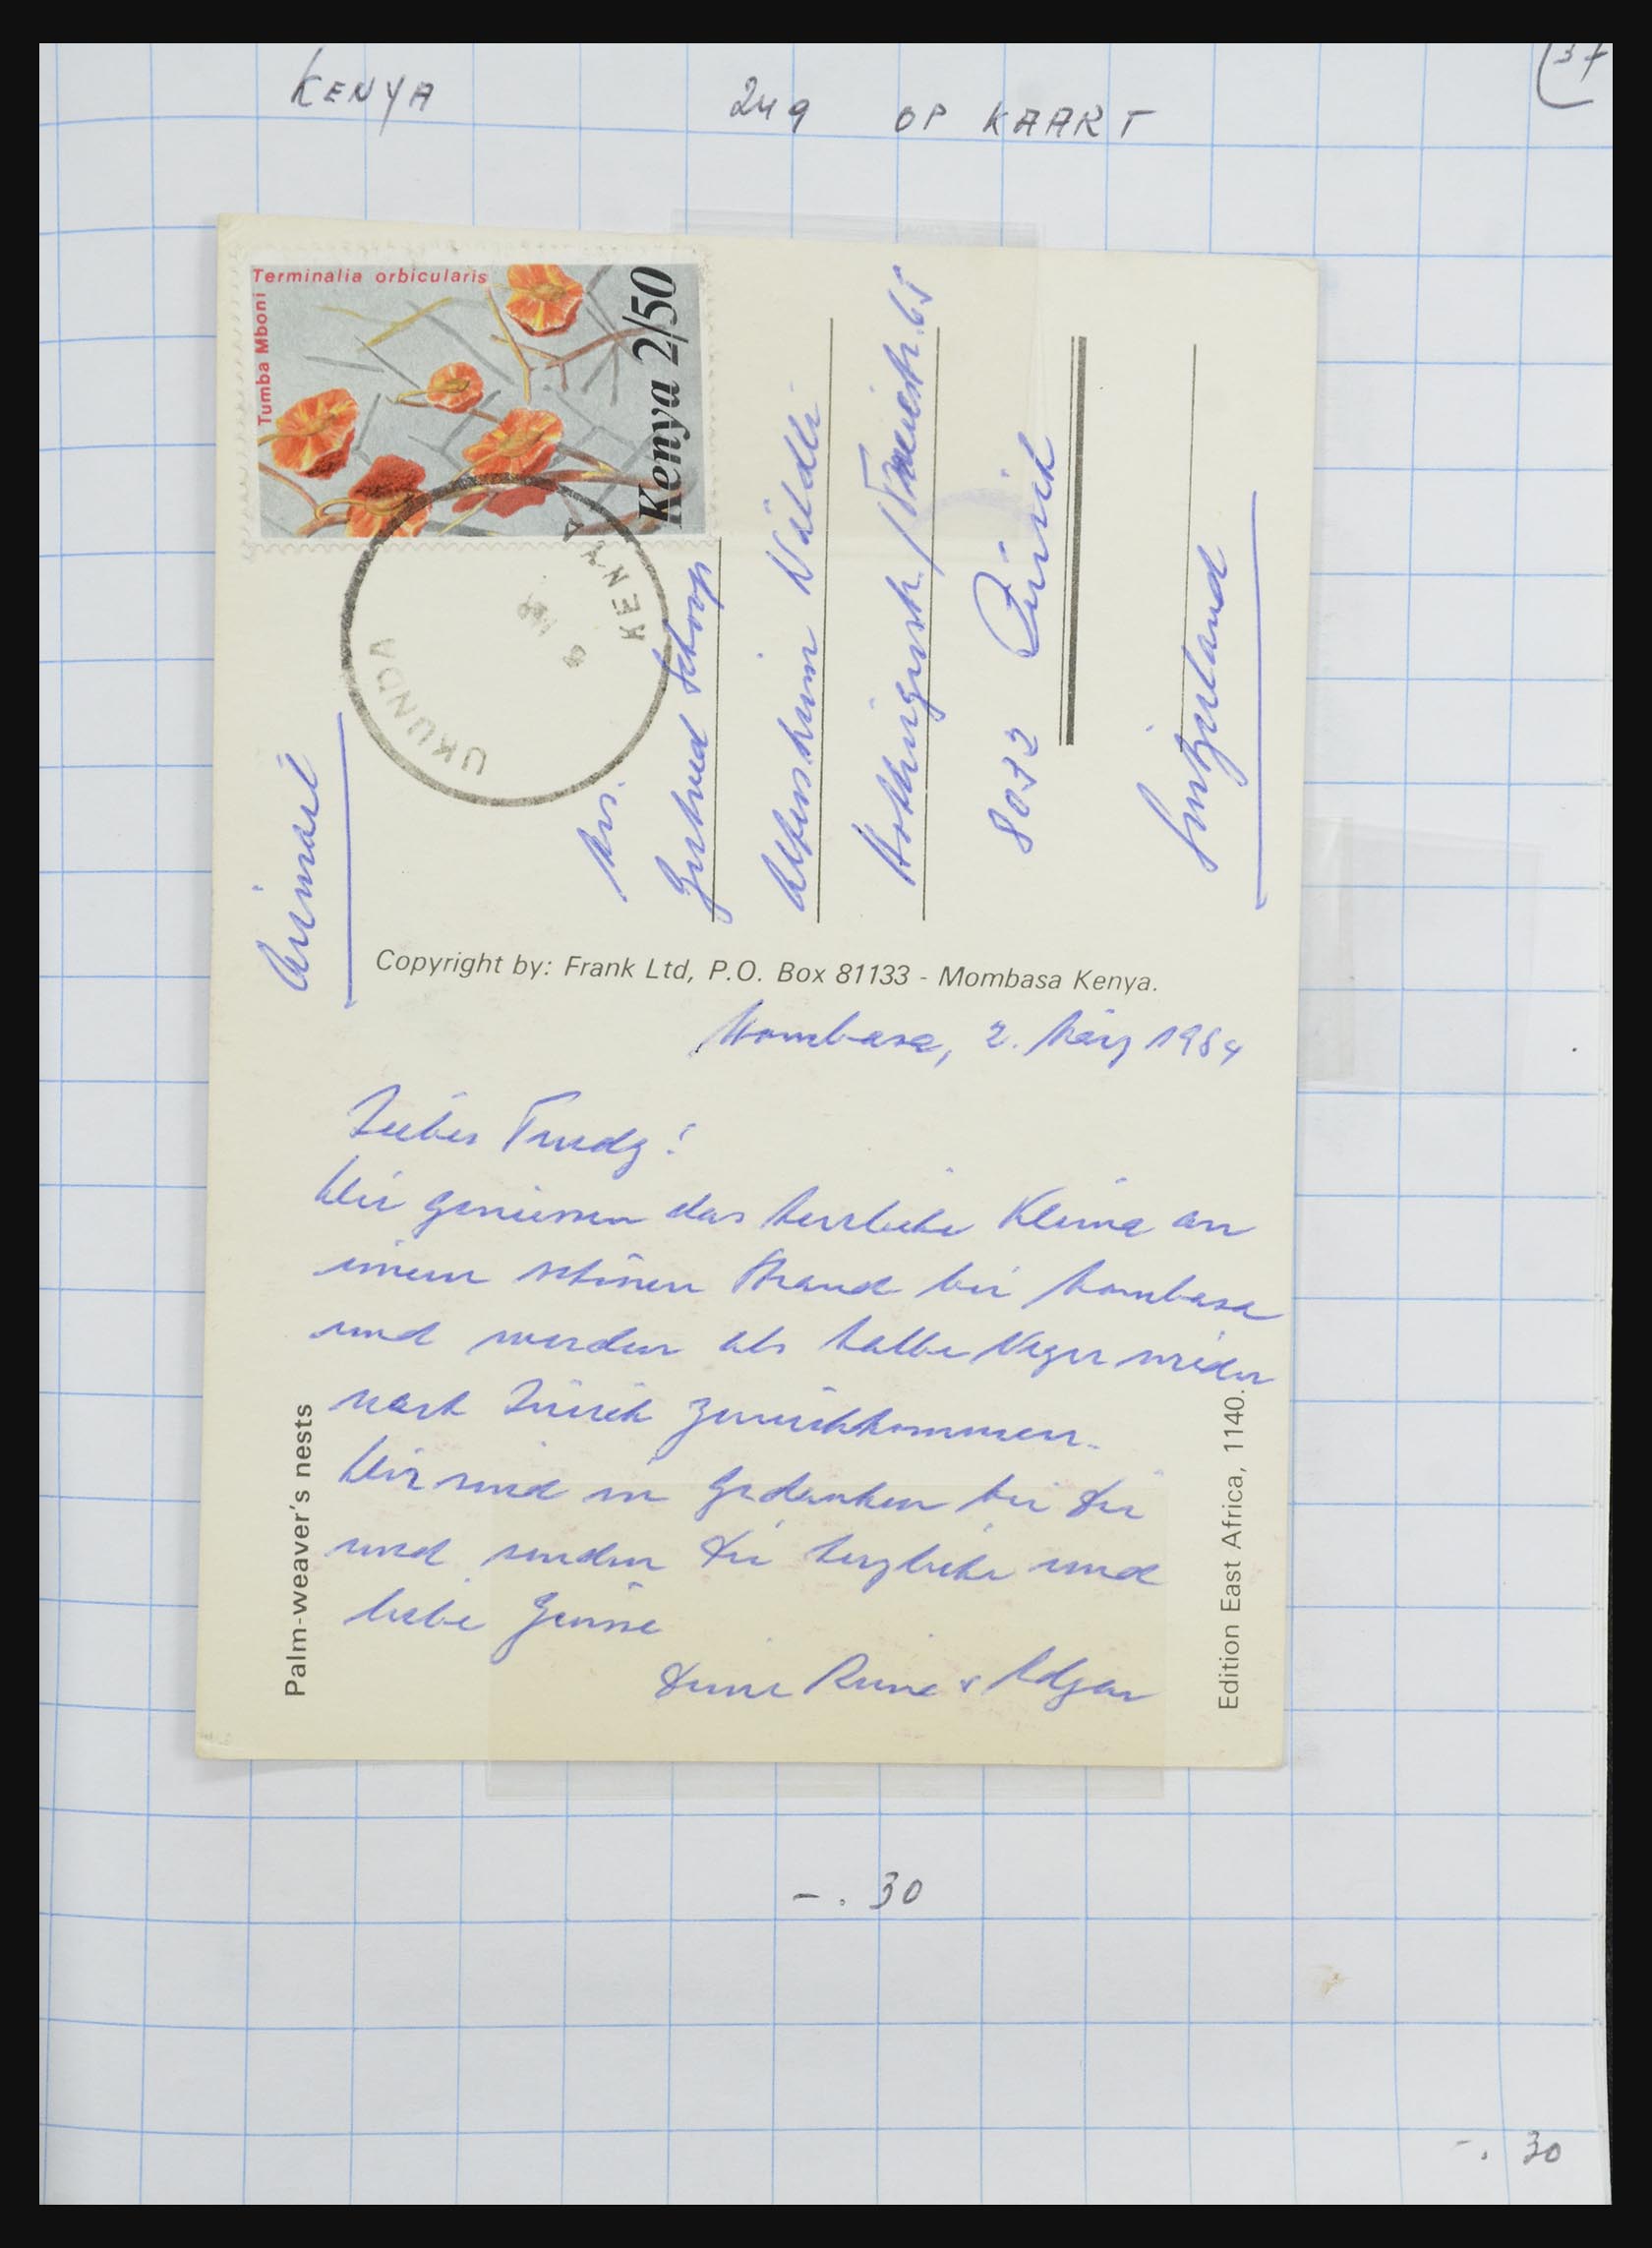 KENYA 249 OP KAART
37
Terminalia orbicularis
Tumba Mboni
Kenya 2/50
UKUNDA
KENYA
Airmail
Mrs.
Gertrud Schoop
Altersheim Wäldli
Hottingerstr.
8032 Zürich
Switzerland
Copyright by: Frank Ltd, P.O. Box 81133 - Mombasa Kenya.
Mombasa, 2. März 1984
Liebes Trudy!
Wir geniessen das herrliche Klima an
einem schönen Strand bei Mombasa
und werden als halbe Neger wieder
nach Zürich zurückkommen.
Wir sind in Gedanken bei Dir
und senden Dir herzliche und
liebe Grüsse
Edgar
Palm-weaver's nests
Edition East Africa, 1140.
-.30
-.30